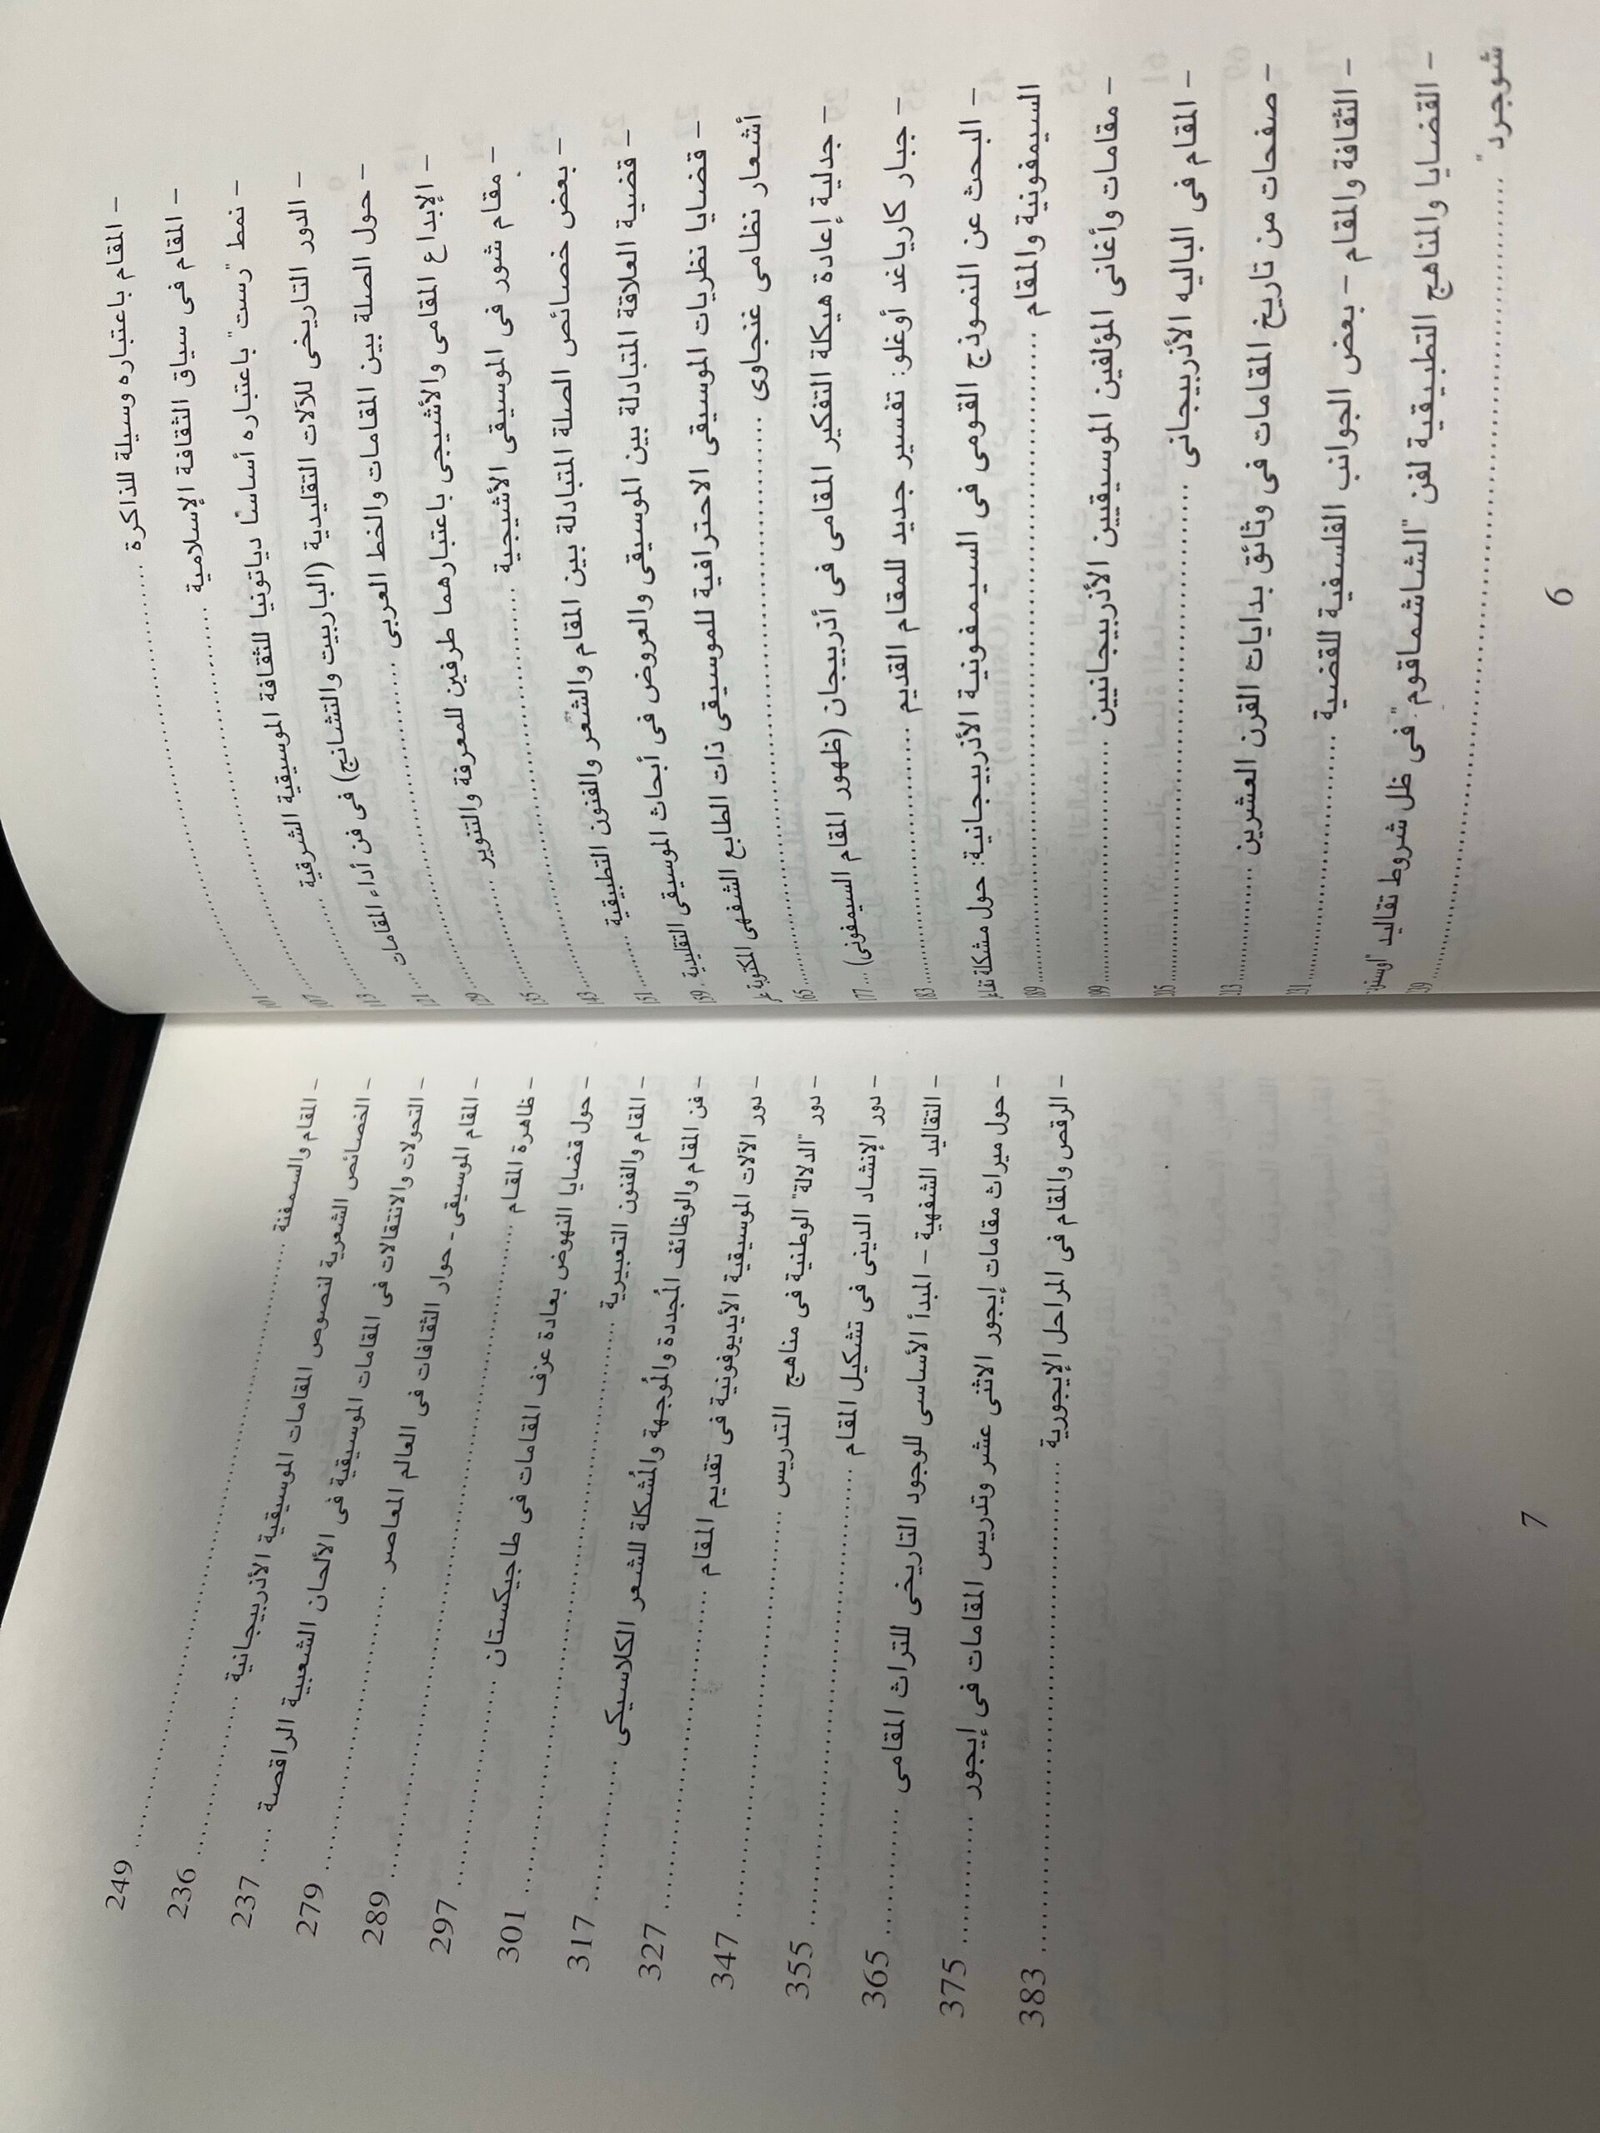 - المقام باعتباره وسيلة للذاكرة ..........
- المقام فى سياق الثقافة الإسلامية .......... 101
- نمط "رست" باعتباره أساسًا دياتونيا للثقافة الموسيقية الشرقية .......... 107
- الدور التاريخى للآلات التقليدية (الباربيت والتشانج) فى فن أداء المقامات .......... 113
- حول الصلة بين المقامات والخط العربى .......... 121
- الإبداع المقامى والأشيجى باعتبارهما طرفين للمعرفة والتنوير .......... 129
- مقام شور فى الموسيقى الأشيجية .......... 135
- بعض خصائص الصلة المتبادلة بين المقام والشعر والفنون التطبيقية .......... 143
- قضية العلاقة المتبادلة بين الموسيقى والعروض فى أبحاث الموسيقى التقليدية .......... 151
- قضايا نظريات الموسيقى الاحترافية للموسيقى ذات الطابع الشفهى المكتوبة على .......... 159
أشعار نظامى غنجاوى .......... 165
- جدلية إعادة هيكلة التفكير المقامى فى أذربيجان (ظهور المقام السيمفونى) .......... 177
- جبار كارياغد أوغلو: تفسير جديد للمقام القديم .......... 183
- البحث عن النموذج القومى فى السيمفونية الأذربيجانية: حول مشكلة
السيمفونية والمقام .......... 189
- مقامات وأغانى المؤلفين الموسيقيين الأذربيجانيين .......... 199
- المقام فى الباليه الأذربيجانى ..........
- صفحات من تاريخ المقامات فى وثائق بدايات القرن العشرين ..........
- الثقافة والمقام – بعض الجوانب الفلسفية للقضية ..........
- القضايا والمناهج التطبيقية لفن "الشاشماقوم" فى ظل شروط تقاليد
شوجرد" ..........
6
- المقام والسمفنة .......... 249
- الخصائص الشعرية لنصوص المقامات الموسيقية الأذربيجانية .......... 236
- التحولات والانتقالات فى المقامات الموسيقية فى الألحان الشعبية الراقصة .......... 237
- المقام الموسيقى - حوار الثقافات فى العالم المعاصر .......... 279
- ظاهرة المقام .......... 289
- حول قضايا النهوض بعادة عزف المقامات فى طاجيكستان .......... 297
- المقام والفنون التعبيرية .......... 301
- فن المقام والوظائف المُجددة والمُوجهة والمُشكلة للشعر الكلاسيكى .......... 317
- دور الآلات الموسيقية الأيديوفونية فى تقديم المقام .......... 327
- دور "الدلالة" الوطنية فى مناهج التدريس .......... 347
- دور الإنشاد الدينى فى تشكيل المقام .......... 355
- التقاليد الشفهية – المبدأ الأساسى للوجود التاريخى للتراث المقامى .......... 365
- حول ميراث مقامات إيجور الاثنى عشر وتدريس المقامات فى إيجور .......... 375
- الرقص والمقام فى المراحل الإيجورية .......... 383
7